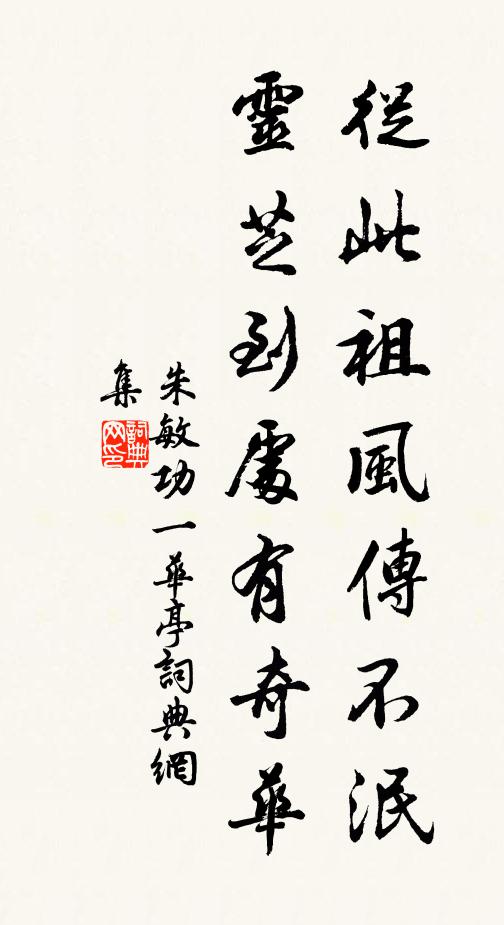 從此祖風傳不泯
靈芝到處有奇華
朱敏功一華亭詞典網
集
詞典
网印